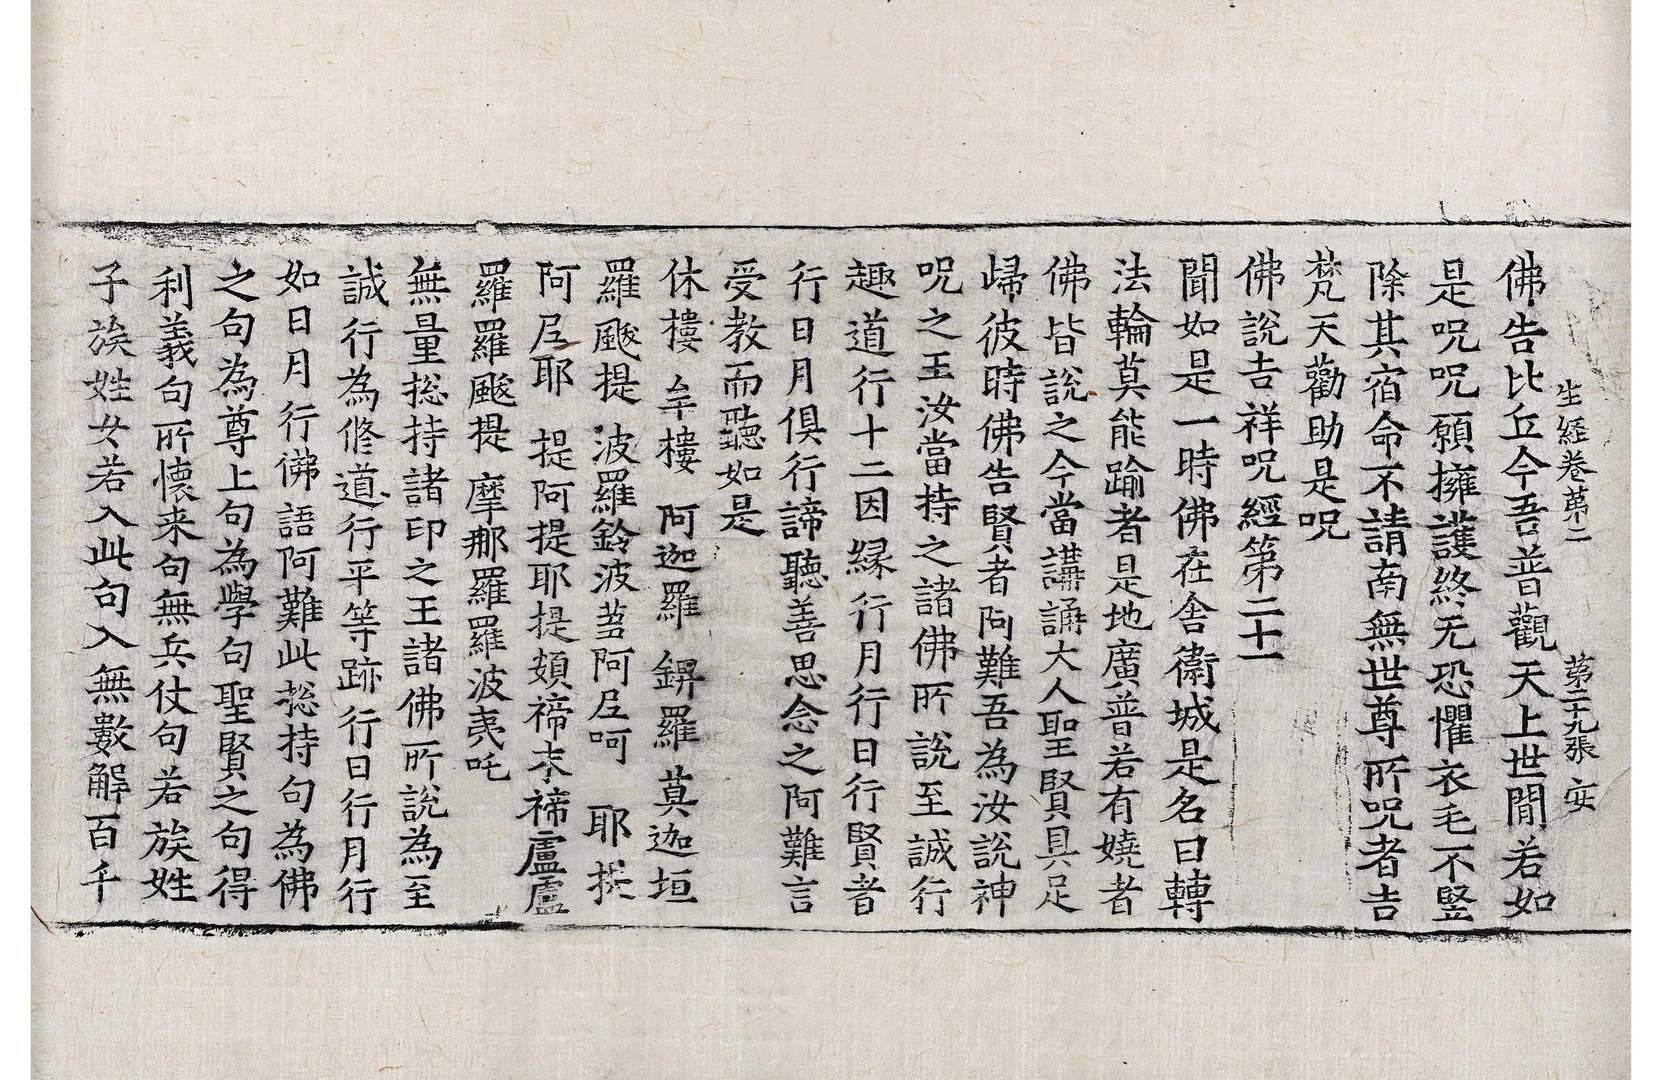 生経卷第二　第二十九張　安
佛告比丘今吾普觀天上世閒若如
是呪呪願擁護終无恐懼衣毛不竪
除其宿命不請南無世尊所呪者吉
梵天勸助是呪
佛說吉祥呪經第二十一
聞如是一時佛在舍衛城是名曰轉
法輪莫能踰者是地廣普若有嬈者
佛皆說之今當講誦大人聖賢具足
歸彼時佛告賢者阿難吾為汝說神
呪之王汝當持之諸佛所說至誠行
趣道行十二因緣行月行日行賢者
行日月俱行諦聽善思念之阿難言
受教而聽如是
休樓　牟樓　阿迦羅　錍羅　莫迦垣
羅颰提　波羅鈴波𦭧阿𡰱呵　耶提
阿𡰱耶　提阿提耶提頞禘末禘盧盧
羅羅颰提　摩那羅羅羅波夷吒
無量揔持諸印之王諸佛所說為至
誠行為修道行平等跡行日行月行
如日月行佛語阿難此揔持句為佛
之句為尊上句為學句聖賢之句得
利義句所懷来句無兵仗句若族姓
子族姓女若入此句入無數解百千